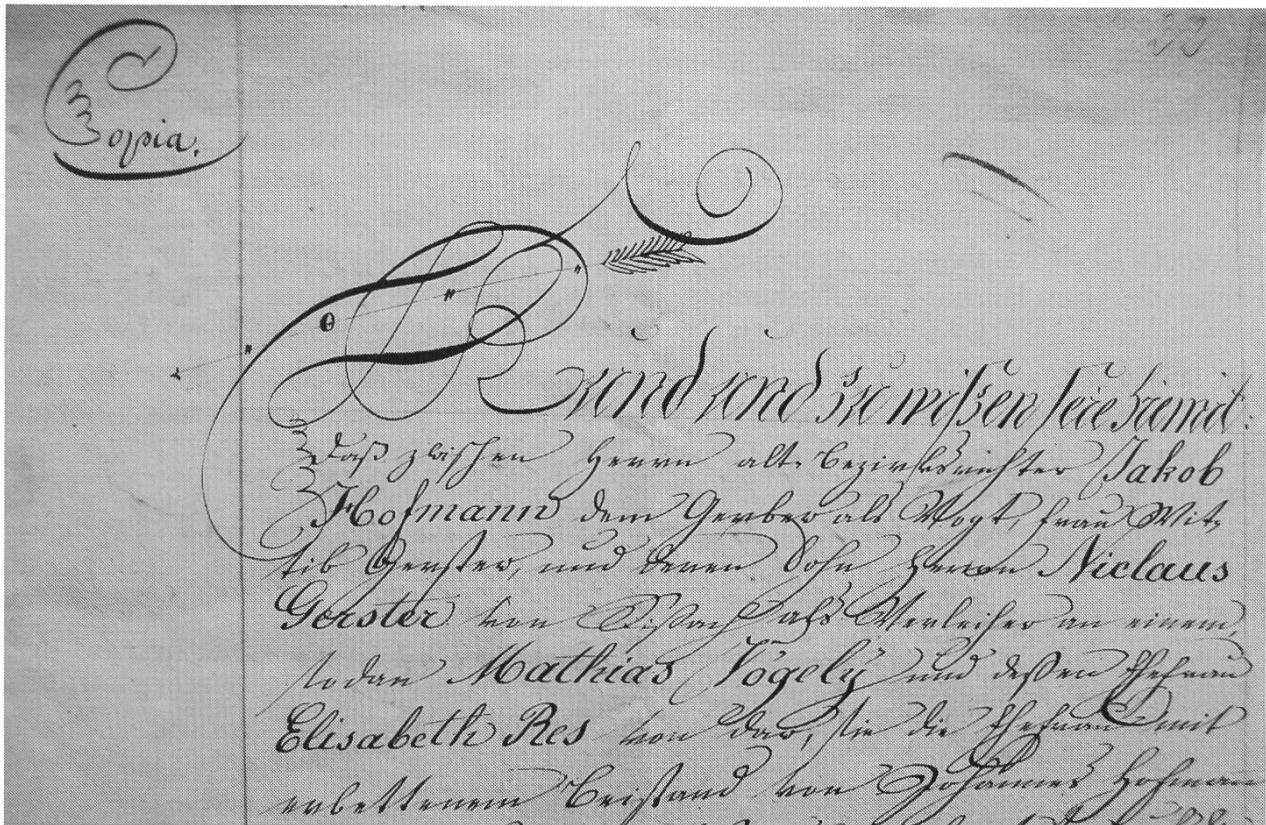 Coppia.
Kund und zue wißen seie hiemit:
Daß zwischen Herrn alt. Bezirksrichter Jakob
Hofmann dem Gerber als Vogt, Frau Wit-
tib Gerster, und deren Sohn Herrn Niclaus
Gerster von Sißach als Verleiher an einem,
sodan Mathias Vögely und deßen Ehefrau
Elisabeth Res von dar, sie die Ehefrau mit
erbettenem Beistand von Johannes Hofmann